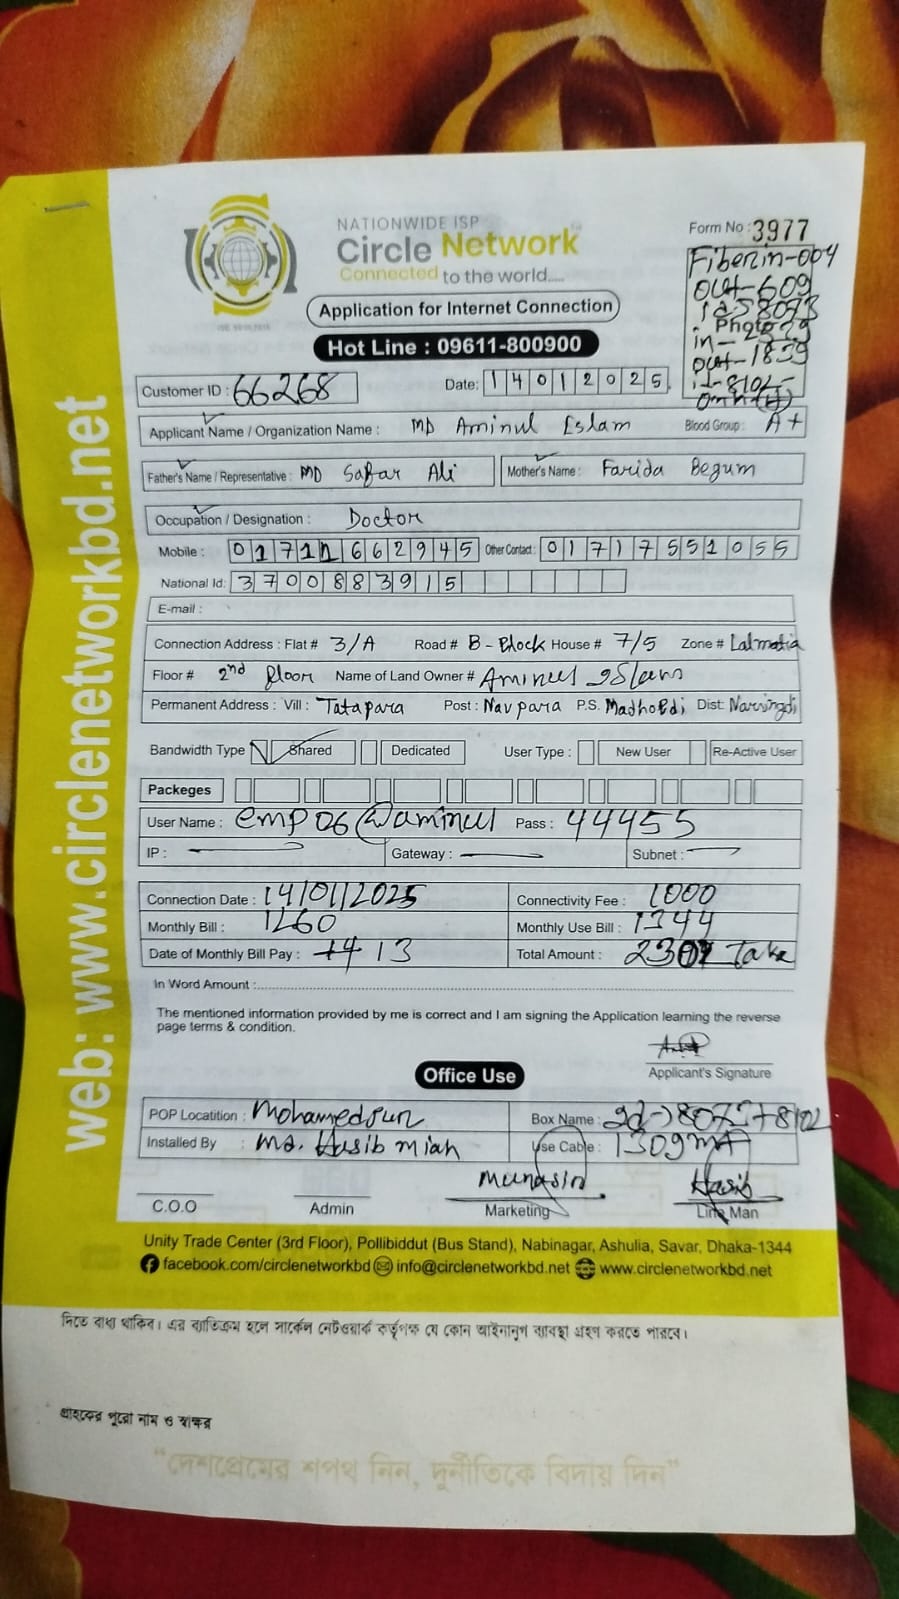 NATIONWIDE ISP
Circle Network
Connected to the world.....
Form No : 3977
Fiber in-004
out-609
id 58073
Photo
in-
out-1839
i-8102-
Application for Internet Connection
Hot Line : 09611-800900
Customer ID : 66268 Date: 14012025
Applicant Name / Organization Name : MD Aminul Islam Blood Group : A+
Father's Name / Representative : MD Safar Ali Mother's Name : Farida Begum
Occupation / Designation : Doctor
Mobile : 01711662945 Other Contact : 01717551055
National Id: 3700883915
E-mail :
Connection Address : Flat # 3/A Road # B-Block House # 7/5 Zone # Lalmatia
Floor # 2nd floor Name of Land Owner # Aminul Islam
Permanent Address : Vill : Tatapara Post : Navpara P.S. Madhobdi Dist: Narsingdi
Bandwidth Type Shared Dedicated User Type : New User Re-Active User
Packeges
User Name : emp06@aminul Pass : 44455
IP : Gateway : Subnet :
Connection Date : 14/01/2025 Connectivity Fee : 1000
Monthly Bill : 1260 Monthly Use Bill : 1344
Date of Monthly Bill Pay : 14 13 Total Amount : Taka
In Word Amount :
The mentioned information provided by me is correct and I am signing the Application learning the reverse
page terms & condition.
Applicant's Signature
Office Use
POP Locatition : Mohamedpur Box Name : Id->8073+8102
Installed By : Md. Hasib miah Use Cable : 1309mA
Hasib
C.O.O Admin Marketing Line Man
Unity Trade Center (3rd Floor), Pollibiddut (Bus Stand), Nabinagar, Ashulia, Savar, Dhaka-1344
facebook.com/circlenetworkbd info@circlenetworkbd.net www.circlenetworkbd.net
web: www.circlenetworkbd.net
দিতে বাধ্য থাকিব। এর ব্যতিক্রম হলে সার্কেল নেটওয়ার্ক কর্তৃপক্ষ যে কোন আইনানুগ ব্যাবস্থা গ্রহণ করতে পারবে।
গ্রাহকের পুরো নাম ও স্বাক্ষর
"দেশপ্রেমের শপথ নিন, দুর্নীতিকে বিদায় দিন"